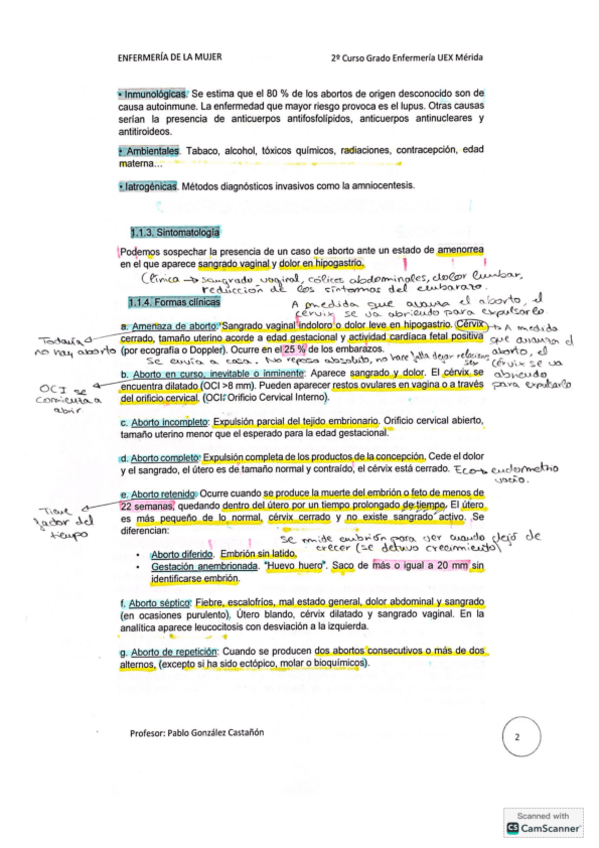 ENFERMERÍA DE LA MUJER 2º Curso Grado Enfermería UEX Mérida
• Inmunológicas. Se estima que el 80 % de los abortos de origen desconocido son de
causa autoinmune. La enfermedad que mayor riesgo provoca es el lupus. Otras causas
serían la presencia de anticuerpos antifosfolípidos, anticuerpos antinucleares y
antitiroideos.
• Ambientales. Tabaco, alcohol, tóxicos químicos, radiaciones, contracepción, edad
materna...
• Iatrogénicas. Métodos diagnósticos invasivos como la amniocentesis.
1.1.3. Sintomatología
Podemos sospechar la presencia de un caso de aborto ante un estado de amenorrea
en el que aparece sangrado vaginal y dolor en hipogastrio.
Clínica → sangrado vaginal, cólicos abdominales, dolor lumbar,
reducción de los síntomas del embarazo.
1.1.4. Formas clínicas
A medida que avanza el aborto, el
cérvix se va abriendo para expulsarlo.
a. Amenaza de aborto: Sangrado vaginal indoloro o dolor leve en hipogastrio. Cérvix
cerrado, tamaño uterino acorde a edad gestacional y actividad cardíaca fetal positiva
(por ecografía o Doppler). Ocurre en el 25 % de los embarazos.
Todavía
no hay aborto
→ A medida
que avanza el
aborto, el
cérvix se va
abriendo
para expulsarlo
Se envía a casa. No reposo absoluto, no hace falta dejar relaciones
b. Aborto en curso, inevitable o inminente: Aparece sangrado y dolor. El cérvix se
encuentra dilatado (OCI >8 mm). Pueden aparecer restos ovulares en vagina o a través
del orificio cervical. (OCI: Orificio Cervical Interno).
OCI se
comienza a
abrir
c. Aborto incompleto: Expulsión parcial del tejido embrionario. Orificio cervical abierto,
tamaño uterino menor que el esperado para la edad gestacional.
d. Aborto completo: Expulsión completa de los productos de la concepción. Cede el dolor
y el sangrado, el útero es de tamaño normal y contraído, el cérvix está cerrado. Eco → endometrio
vacío.
e. Aborto retenido: Ocurre cuando se produce la muerte del embrión o feto de menos de
22 semanas, quedando dentro del útero por un tiempo prolongado de tiempo. El útero
es más pequeño de lo normal, cérvix cerrado y no existe sangrado activo. Se
diferencian:
Tiene
del
tiempo
Se mide embrión para ver cuando dejó de
crecer (se detuvo crecimiento)
• Aborto diferido. Embrión sin latido.
• Gestación anembrionada. "Huevo huero". Saco de más o igual a 20 mm sin
identificarse embrión.
f. Aborto séptico: Fiebre, escalofríos, mal estado general, dolor abdominal y sangrado
(en ocasiones purulento), Útero blando, cérvix dilatado y sangrado vaginal. En la
analítica aparece leucocitosis con desviación a la izquierda.
g. Aborto de repetición: Cuando se producen dos abortos consecutivos o más de dos
alternos, (excepto si ha sido ectópico, molar o bioquímicos).
Profesor: Pablo González Castañón
2
Scanned with
CS CamScanner